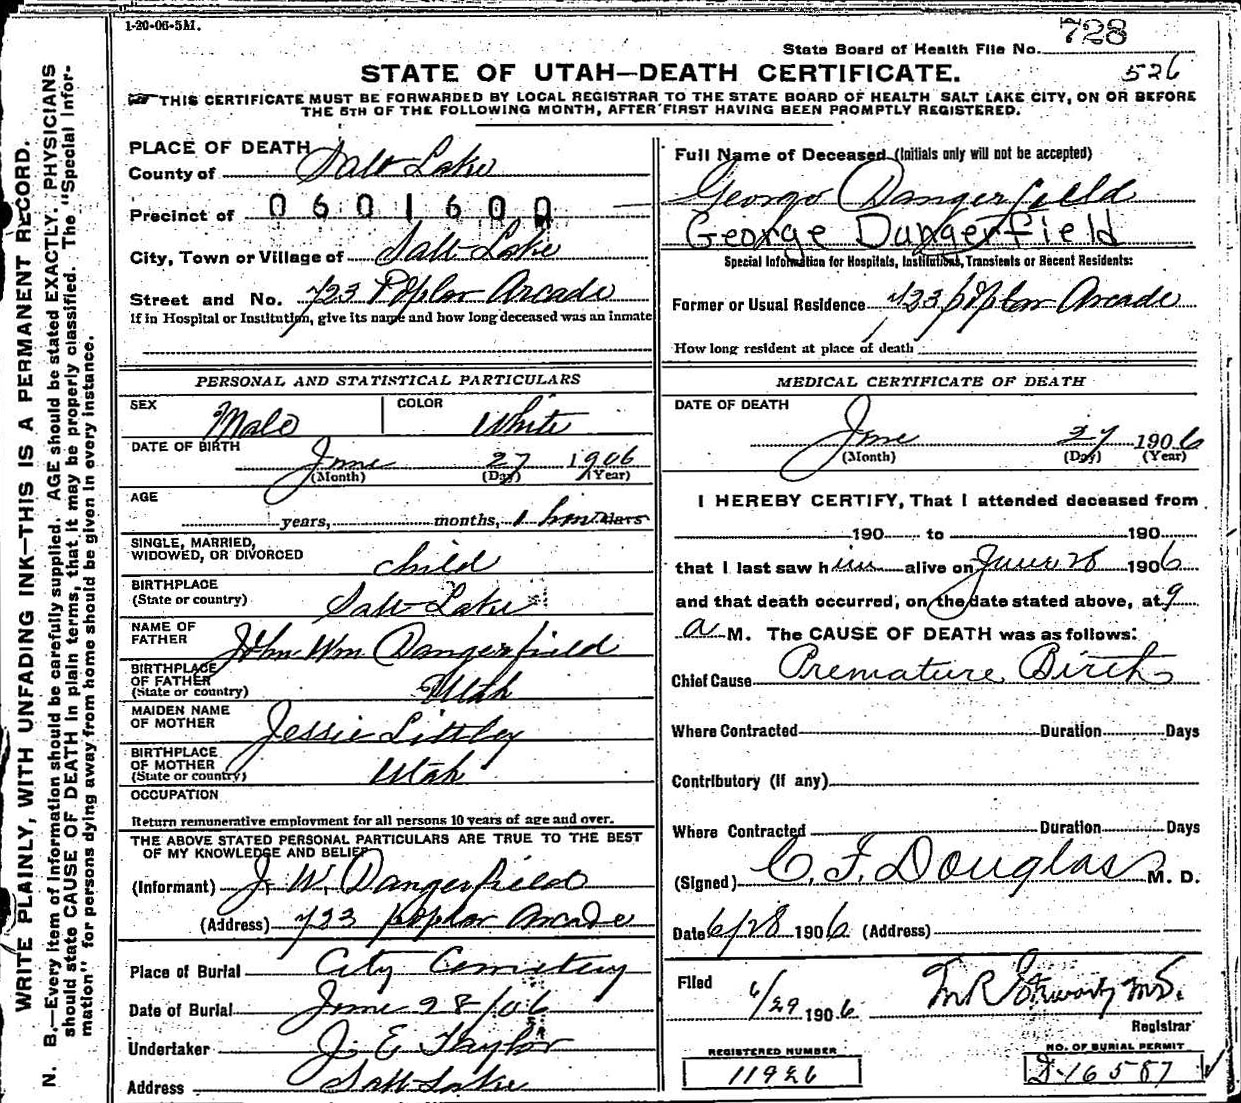 1-20-06-5M.
728
State Board of Health File No.
STATE OF UTAH—DEATH CERTIFICATE.
526
THIS CERTIFICATE MUST BE FORWARDED BY LOCAL REGISTRAR TO THE STATE BOARD OF HEALTH SALT LAKE CITY, ON OR BEFORE
THE 5TH OF THE FOLLOWING MONTH, AFTER FIRST HAVING BEEN PROMPTLY REGISTERED.
WRITE PLAINLY, WITH UNFADING INK—THIS IS A PERMANENT RECORD.
N. B.—Every item of information should be carefully supplied. AGE should be stated EXACTLY. PHYSICIANS
should state CAUSE OF DEATH in plain terms, that it may be properly classified. The "Special Infor-
mation" for persons dying away from home should be given in every instance.
PLACE OF DEATH
County of Salt Lake
Precinct of 0601600
City, Town or Village of Salt Lake
Street and No. 723 Poplar Arcade
If in Hospital or Institution, give its name and how long deceased was an inmate
PERSONAL AND STATISTICAL PARTICULARS
SEX Male COLOR White
DATE OF BIRTH
June 27 1906
(Month) (Day) (Year)
AGE
years, months, 1 hour days
SINGLE, MARRIED,
WIDOWED, OR DIVORCED child
BIRTHPLACE
(State or country) Salt Lake
NAME OF
FATHER John Wm Dangerfield
BIRTHPLACE
OF FATHER
(State or country) Utah
MAIDEN NAME
OF MOTHER Jessie Littley
BIRTHPLACE
OF MOTHER
(State or country) Utah
OCCUPATION
Return remunerative employment for all persons 10 years of age and over.
THE ABOVE STATED PERSONAL PARTICULARS ARE TRUE TO THE BEST
OF MY KNOWLEDGE AND BELIEF
(Informant) J. W. Dangerfield
(Address) 723 poplar Arcade
Place of Burial City Cemetery
Date of Burial June 28/06
Undertaker J. E Taylor
Address Salt Lake
Full Name of Deceased (Initials only will not be accepted)
George Dangerfield
George Dangerfield
Special Information for Hospitals, Institutions, Transients or Recent Residents:
Former or Usual Residence 723 poplar Arcade
How long resident at place of death
MEDICAL CERTIFICATE OF DEATH
DATE OF DEATH
June 27 1906
(Month) (Day) (Year)
I HEREBY CERTIFY, That I attended deceased from
190 to 190
that I last saw him alive on June 28 1906
and that death occurred, on the date stated above, at 9
a M. The CAUSE OF DEATH was as follows:
Chief Cause Premature Birth
Where Contracted Duration Days
Contributory (if any)
Where Contracted Duration Days
(Signed) C. F. Douglas M. D.
Date 6/28 1906 (Address)
Filed 6/29 1906
Registrar
REGISTERED NUMBER
11926
NO. OF BURIAL PERMIT
D-16587